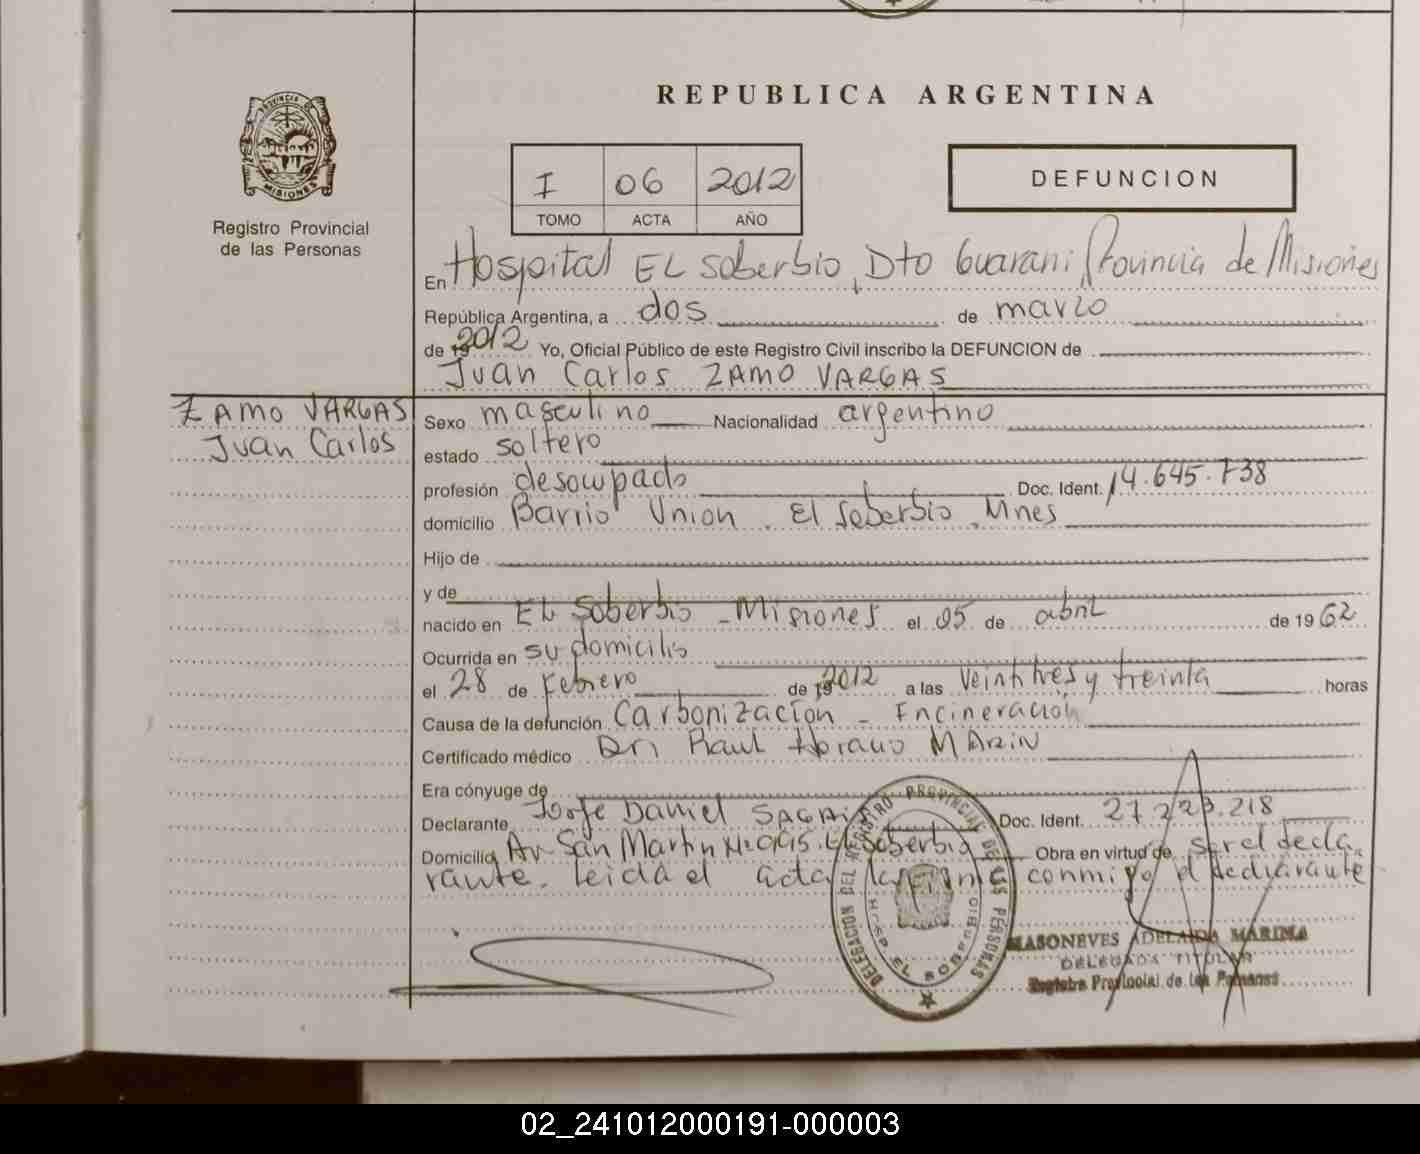 REPUBLICA ARGENTINA
PROVINCIA DE
MISIONES
Registro Provincial
de las Personas
I 06 2012
TOMO ACTA AÑO
DEFUNCION
En Hospital EL Soberbio, Dto Guarani, Provincia de Misiones
República Argentina, a dos de marzo
de 19 2012 Yo, Oficial Público de este Registro Civil inscribo la DEFUNCION de
Juan Carlos ZAMO VARGAS
ZAMO VARGAS
Juan Carlos
Sexo masculino Nacionalidad argentino
estado soltero
profesión desocupado Doc. Ident. 14.645.738
domicilio Barrio Union. El Soberbio. Mnes
Hijo de
y de
nacido en EL Soberbio - Misiones el 05 de abril de 1962
Ocurrida en su domicilio
el 28 de febrero de 19 2012 a las veintitres y treinta horas
Causa de la defunción Carbonización - Encineración
Certificado médico Dr Raul Horacio MARIN
Era cónyuge de
Declarante Jorge Daniel Doc. Ident. 27.223.218
Domicilio Av San Martin El Soberbio Obra en virtud de ser el decla
rante. Leida el acta la firma conmigo el declarante
DELEGACION DEL REGISTRO PROVINCIAL DE LAS PERSONAS
EL SOBERBIO
MASONEVES ADELAIDA MARINA
DELEGADA TITULAR
Registro Provincial de las Personas
02_241012000191-000003